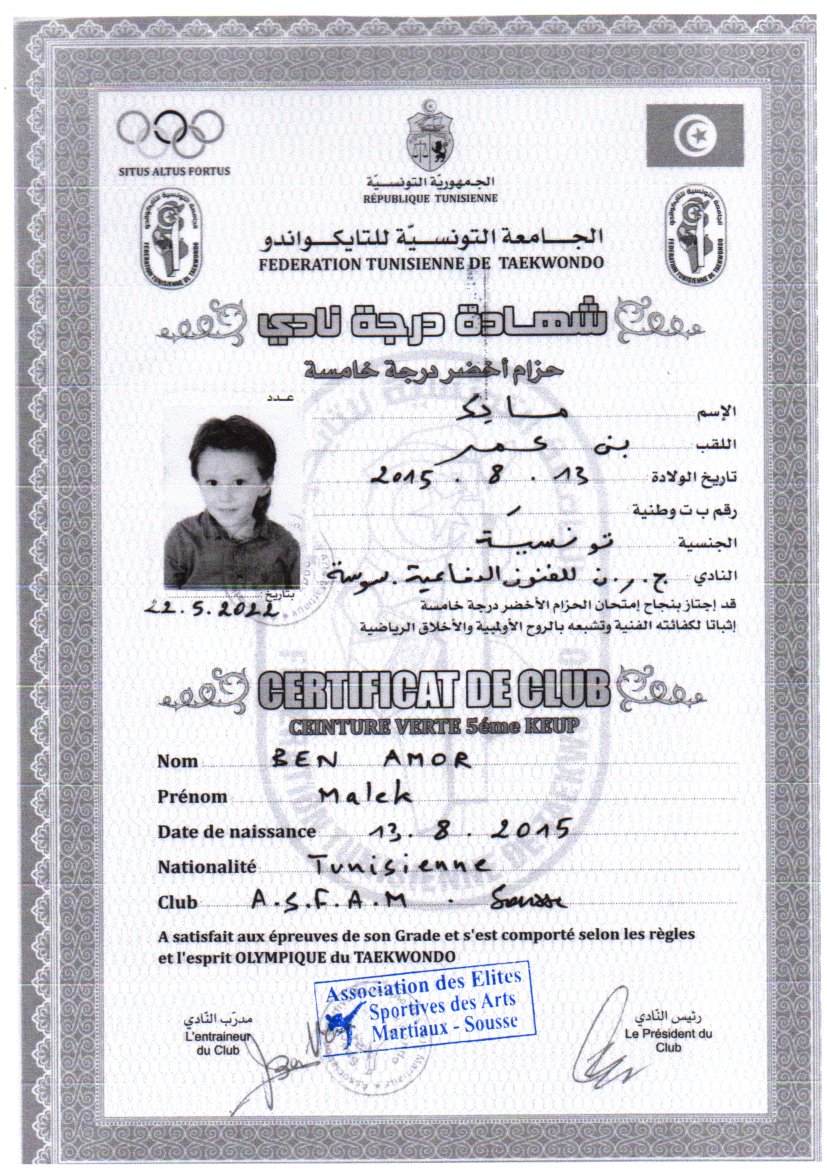 SITUS ALTUS FORTUS
الجمهوريّة التونسيّة
RÉPUBLIQUE TUNISIENNE
الجامعة التونسيّة للتايكواندو
FEDERATION TUNISIENNE DE TAEKWONDO
شهادة درجة نادي
حزام أخضر درجة خامسة
عدد
الإسم مالك
اللقب بن عمر
تاريخ الولادة 13 . 8 . 2015
رقم ب ت وطنية
الجنسية تونسية
النادي ج.ر.ن للفنون الدفاعية . سوسة
بتاريخ
22.5.2022
قد إجتاز بنجاح إمتحان الحزام الأخضر درجة خامسة
إثباتا لكفائته الفنية وتشبعه بالروح الأولمبية والأخلاق الرياضية
CERTIFICAT DE CLUB
CEINTURE VERTE 5éme KEUP
Nom BEN AMOR
Prénom Malek
Date de naissance 13. 8 . 2015
Nationalité Tunisienne
Club A.S.F.A.M . Sousse
A satisfait aux épreuves de son Grade et s'est comporté selon les règles
et l'esprit OLYMPIQUE du TAEKWONDO
Association des Elites
Sportives des Arts
Martiaux - Sousse
مدرّب النّادي
L'entraineur
du Club
رئيس النّادي
Le Président du
Club